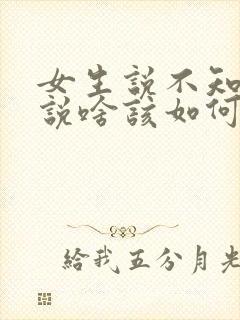 女生説不知
説啥該如何
給我五分月光